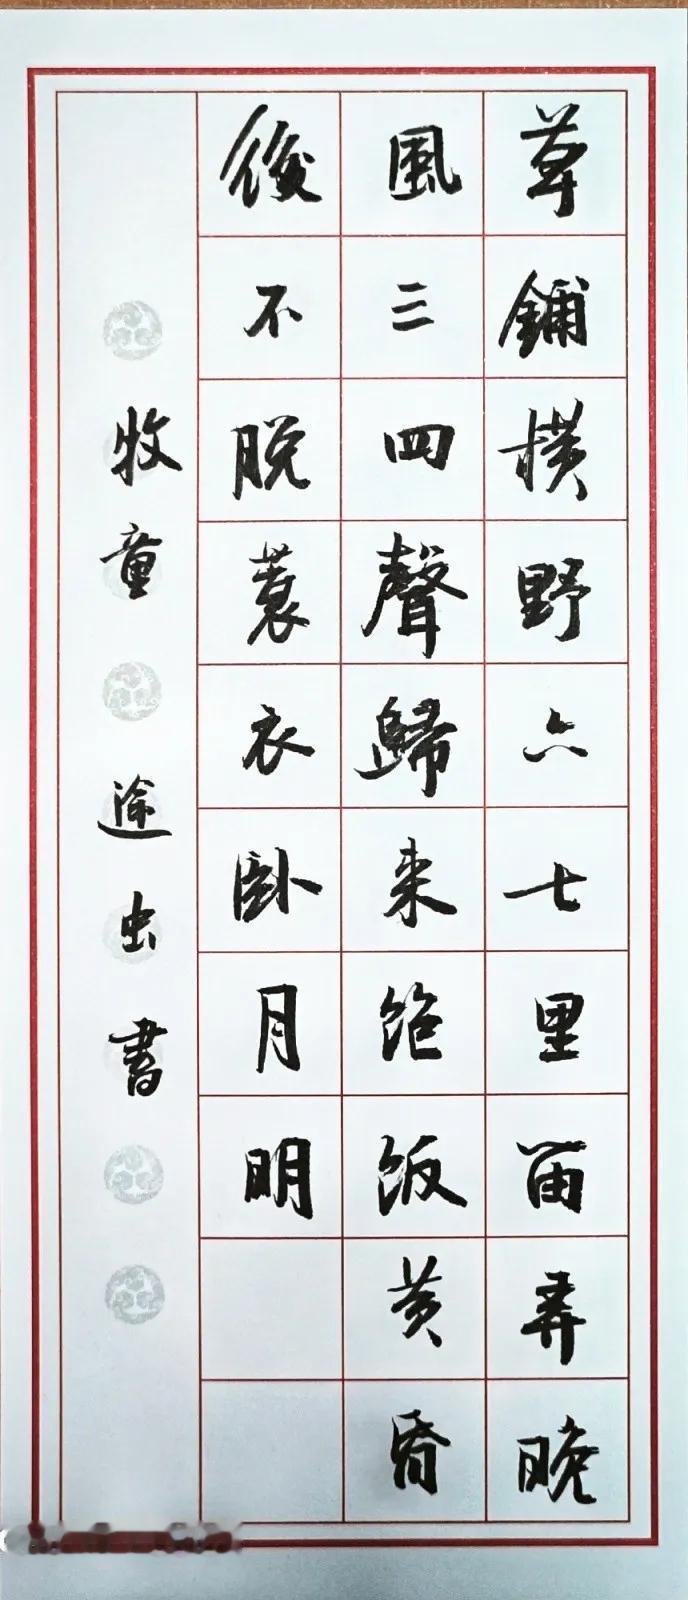 草鋪橫野六七里笛弄晚
風三四聲歸来飽飯黄昏
後不脱蓑衣卧月明
牧童 途虫書